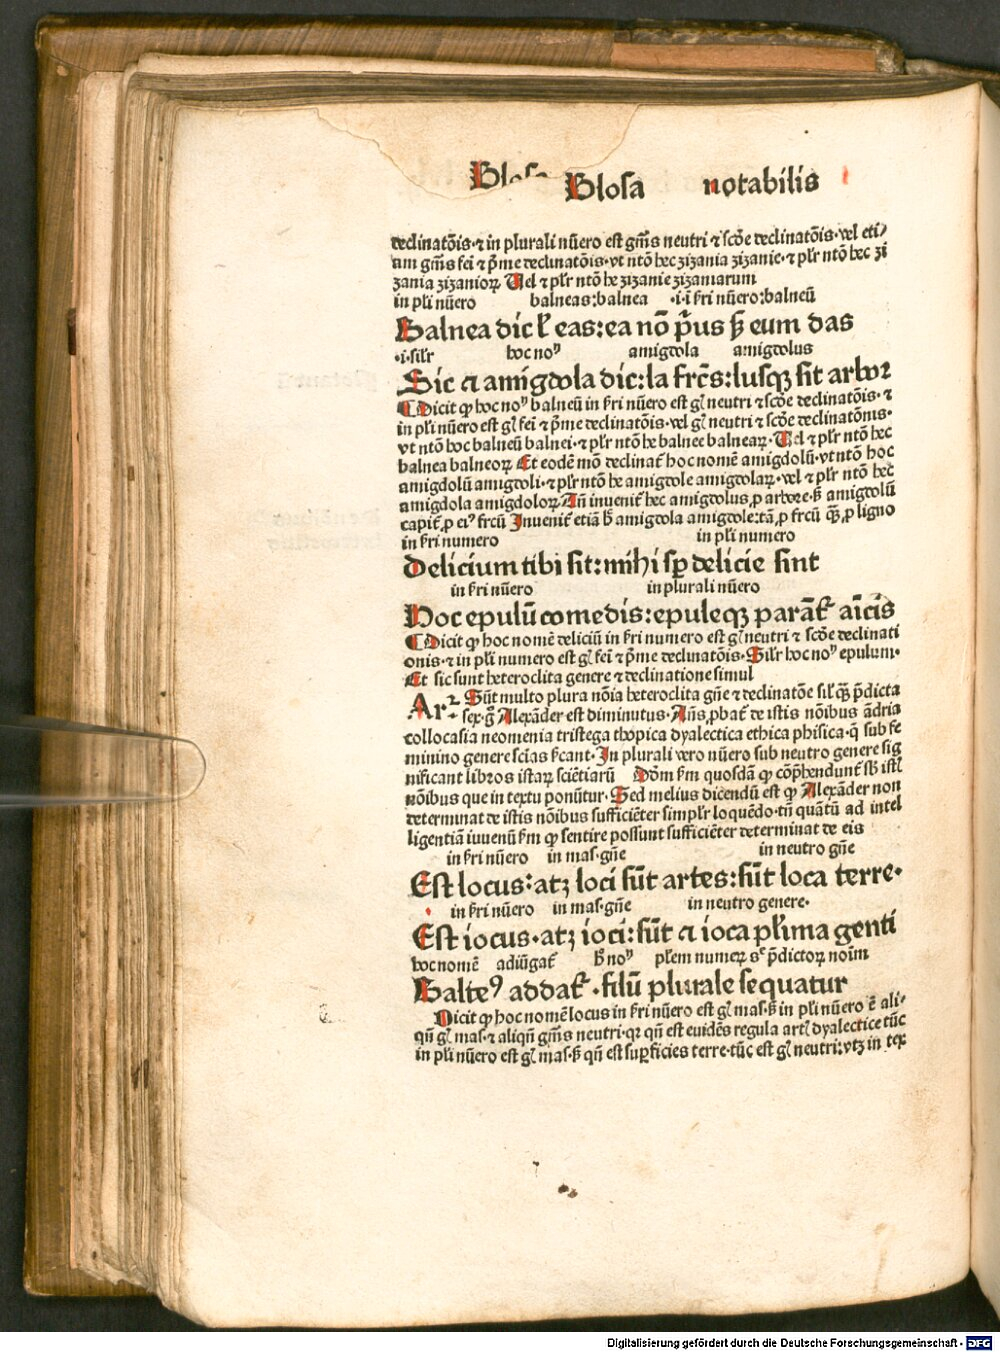 Glosa notabilis
declinatõis·⁊ in plurali nũero est gñis neutri ⁊ scõe declinatõis·vel eti/
am gñis feĩ ⁊ p̃me declinatõis·vt ntõ hec zizania zizanie·⁊ pl̃r ntõ hec zi
zania zizanioꝝ Uel ⁊ pl̃r ntõ he zizanie zizaniarum
in pl̃i nũero balneas:balnea ·i·ĩ sĩri nũero:balneũ
Balnea dic ł eas:ea nõ p̃us ß eum das
·i·sil̃r hoc noꝰ amigdola amigdolus
Sic ⁊ amigdola dic:la frc̃s:lusqꝫ sit arbor
Dicit ꝙ hoc noꝰ balneũ in sĩri nũero est gł neutri ⁊ scõe declinatõis·⁊
in pl̃i nũero est gł feĩ ⁊ p̃me declinatõis·vel gł neutri ⁊ scõe declinatõnis·
vt ntõ hoc balneũ balnei·⁊ pl̃r ntõ he balnee balneaꝝ·Uel ⁊ pl̃r ntõ hec
balnea balneoꝝ Et eodẽ mõ declinat̃ hoc nomẽ amigdolũ·vt ntõ hoc
amigdolũ amigdoli·⁊ pl̃r ntõ he amigdole amigdolaꝝ·vel ⁊ pl̃r ntõ hec
amigdola amigdoloꝝ An̄ inuenit̃ hec amigdolus ꝓ arbore·ß amigdolũ
capit̃ ꝓ eiꝰ frcũ Inuenit̃ etiã h̃ amigdola amigdole:tã ꝓ frcũ qꝫ̃ ꝓ ligno
in sĩri numero in pl̃i numero
Delicium tibi sit:mihi sꝑ delicie sint
in sĩri nũero in plurali nũero
Hoc epulũ comedis:epuleqꝫ parãt̃ aĩcis
Dicit ꝙ hoc nomẽ deliciũ in sĩri numero est gł neutri ⁊ scõe declinati
onis·⁊ in pl̃i numero est gł feĩ ⁊ p̃me declinatõis·Sil̃r hoc noꝰ epulum·
Et sic sunt heteroclita genere ⁊ declinatione simul
Ar² Sũt multo plura nõia heteroclita gñe ⁊ declinatõe sil̃ qꝫ̃ p̃dicta
sex·g̃ Alexãder est diminutus·Añs ꝓbat̃ de istis nõibus ãdria
collocasia neomenia tristega thopica dyalectica ethica phisica·q̃ sub fe
minino genere scĩas s̃cant·In plurali vero nũero sub neutro genere sig
nificant libros istaꝝ sciẽtiarũ Dõm s̃m quosdã ꝙ cõp̃hendunt̃ sb̃ istł
nõibus que in textu ponũtur·Sed melius dicendũ est ꝙ Alexãder non
determinat de istis nõibus sufficiẽter simpl̃r loquẽdo·tñ quãtũ ad intel
ligentiã iuuenũ s̃m ꝙ sentire possunt sufficiẽter determinat de eis
in sĩri nũero in mas·gñe in neutro gñe
Est locus:atꝫ loci sũt artes:sũt loca terre·
in sĩri nũero in mas·gñe in neutro genere·
Est iocus·atꝫ ioci:sũt ⁊ ioca pl̃ima genti
hoc nomẽ adiũgat̃ h̃ noꝰ pl̃em numeꝝ sc̃ p̃dictoꝝ noĩm
Balteꝰ addat̃·filũ plurale sequatur
Dicit ꝙ hoc nomẽ locus in sĩri nũero est gł mas·ß in pl̃i nũero ẽ ali/
qñ gł mas·⁊ aliqñ gñis neutri·qꝛ qñ est euidẽs regula artł dyalectice tũc
in pl̃i nũero est gł mas·ß qñ est suꝑficies terre·tũc est gł neutri:vtꝫ in tex
Digitalisierung gefördert durch die Deutsche Forschungsgemeinschaft - DFG